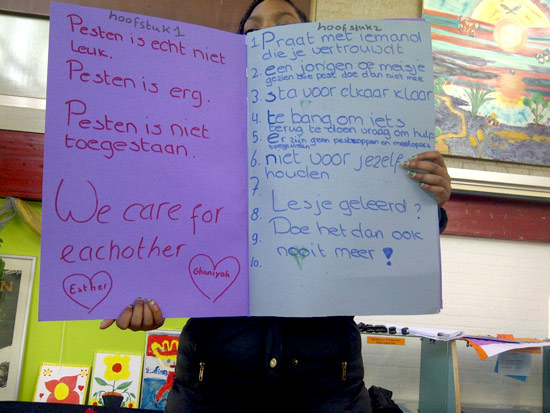 hoofstuk 1
Pesten is echt niet
leuk.
Pesten is erg.
Pesten is niet
toegestaan.
We care for
eachother
Esther
Ghaniyah
hoofstuk 2
1. Praat met iemand
die je vertrouwdt
2. een jongen of meisje
gezien die pest doe dan niet mee
3. sta voor elkaar klaar
4. te bang om iets
terug te doen vraag om hulp
5. er zijn geen pestkoppen en meelopers
toegestaan
6. niet voor jezelf
houden
7.
8. Lesje geleerd?
9. Doe het dan ook
10. nooit meer!